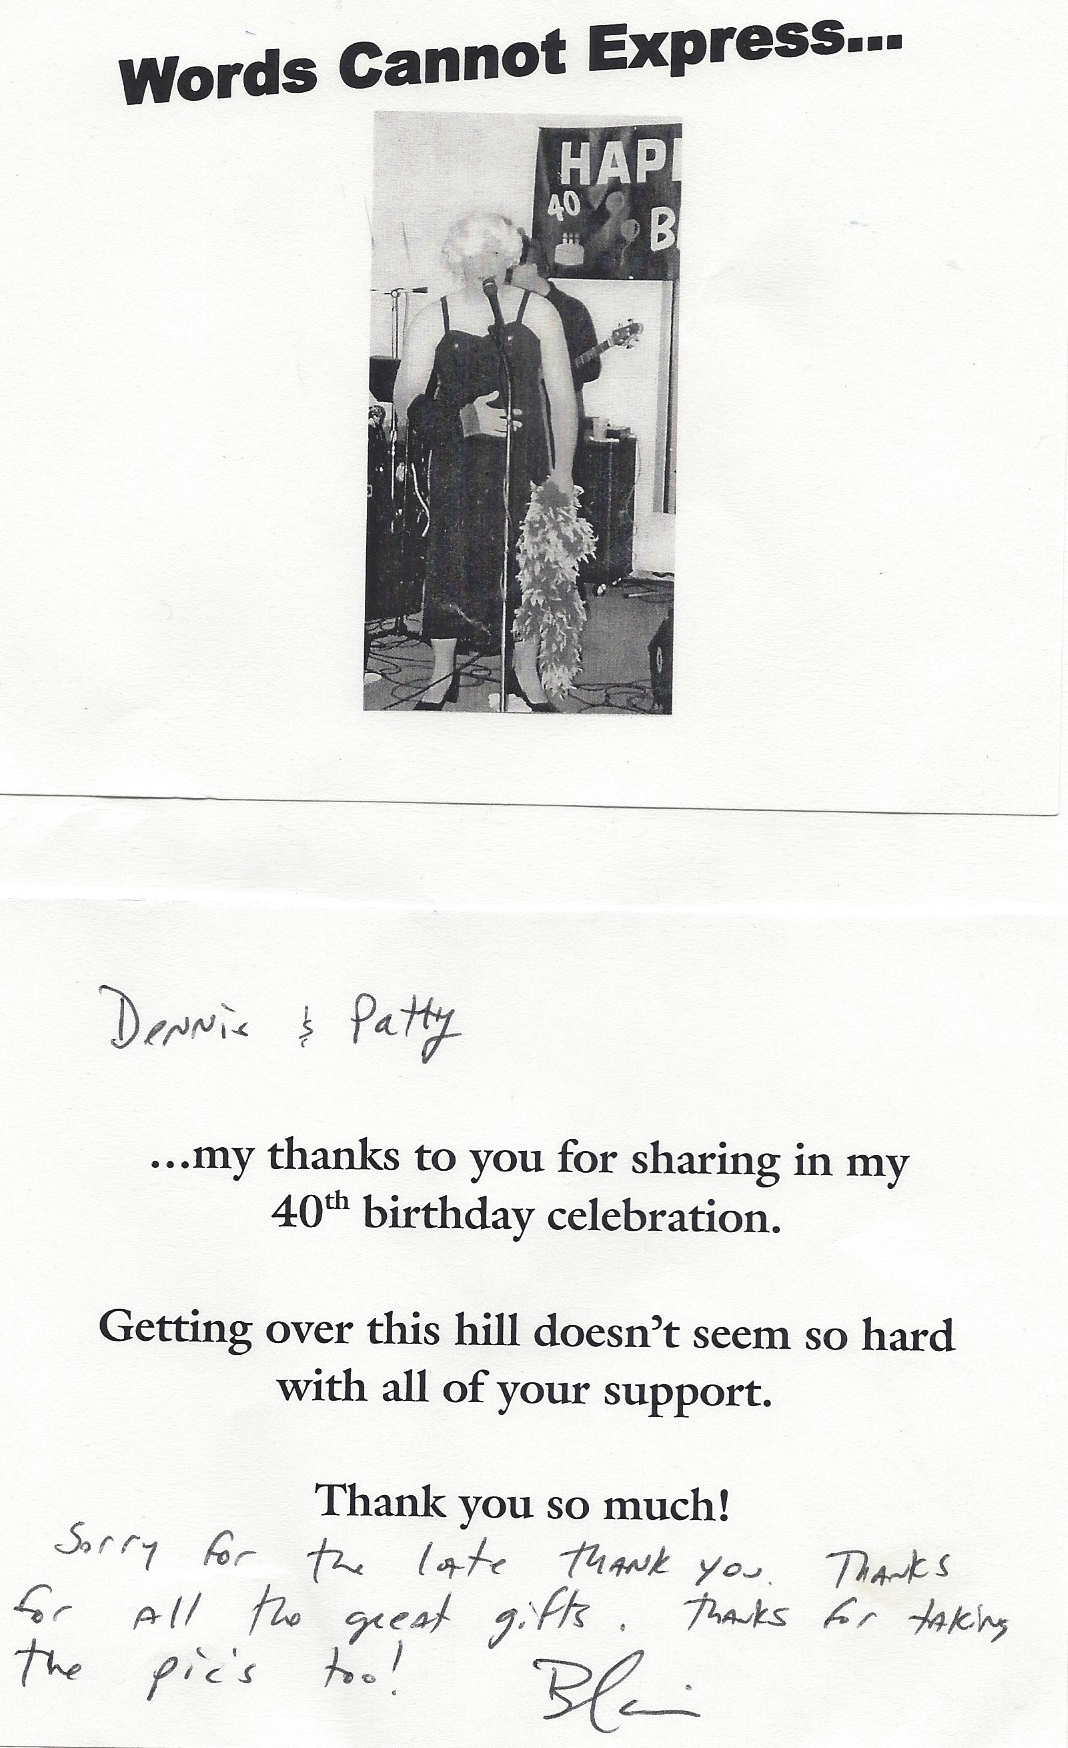 Words Cannot Express...
HAP
40
B
Dennis & Patty
...my thanks to you for sharing in my
40th birthday celebration.
Getting over this hill doesn't seem so hard
with all of your support.
Thank you so much!
Sorry for the late THANK you. THANKS
for All the great gifts. Thanks for taking
the pic's too!
Blair